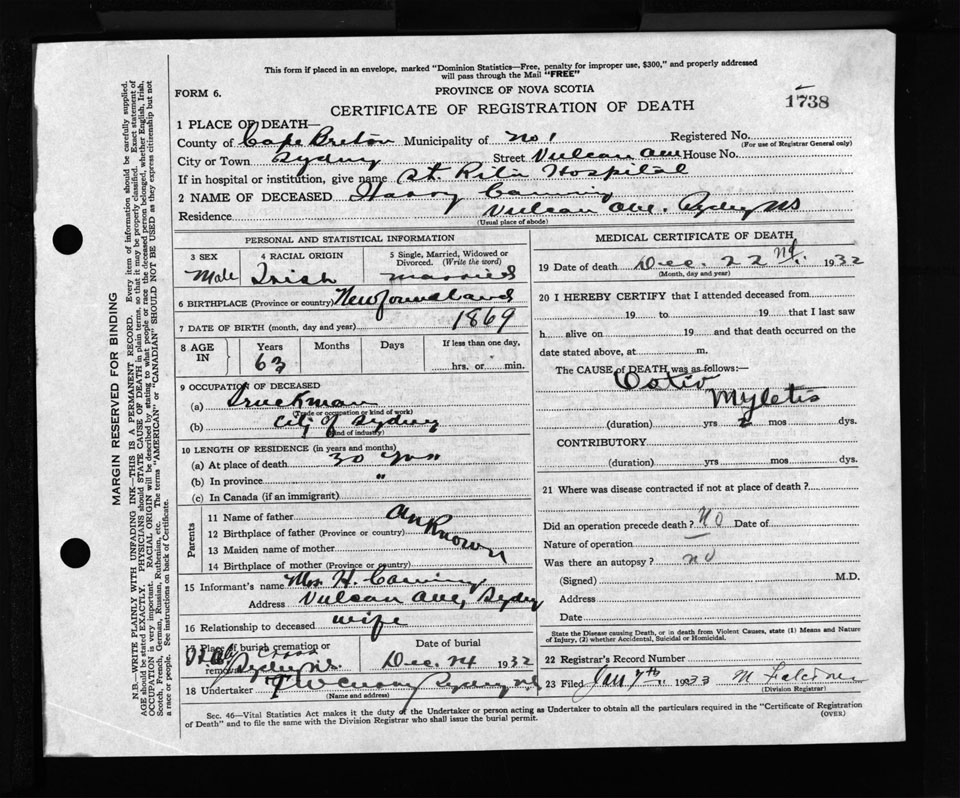 This form if placed in an envelope, marked "Dominion Statistics—Free, penalty for improper use, $300," and properly addressed
will pass through the Mail "FREE"
FORM 6.
PROVINCE OF NOVA SCOTIA
1738
CERTIFICATE OF REGISTRATION OF DEATH
1 PLACE OF DEATH—
County of Cape Breton Municipality of No 1 Registered No.
(For use of Registrar General only)
City or Town Sydney Street Vulcan Ave House No.
If in hospital or institution, give name St. Rita Hospital
2 NAME OF DECEASED Harry
Residence Vulcan Ave. Sydney NS
(Usual place of abode)
PERSONAL AND STATISTICAL INFORMATION
3 SEX 4 RACIAL ORIGIN 5 Single, Married, Widowed or
Divorced. (Write the word)
Male Irish married
6 BIRTHPLACE (Province or country) Newfoundland
7 DATE OF BIRTH (month, day and year) 1869
8 AGE IN Years Months Days If less than one day,
63 hrs. or min.
9 OCCUPATION OF DECEASED
(a) Truckman
(Trade or occupation or kind of work)
(b) City of Sydney
(Kind of industry)
10 LENGTH OF RESIDENCE (in years and months)
(a) At place of death 30 yrs
(b) In province "
(c) In Canada (if an immigrant)
Parents
11 Name of father
12 Birthplace of father (Province or country)
unknown
13 Maiden name of mother
14 Birthplace of mother (Province or country)
15 Informant's name Mrs H.
Address Vulcan Ave, Sydney
16 Relationship to deceased wife
17 Place of burial cremation or removal Date of burial
Holy Cross
Sydney N.S. Dec. 24 1932
18 Undertaker Sydney NS
(Name and address)
MEDICAL CERTIFICATE OF DEATH
19 Date of death Dec. 22nd. 1932
(Month, day and year)
20 I HEREBY CERTIFY that I attended deceased from
19 to 19 that I last saw
h alive on 19 and that death occurred on the
date stated above, at m.
The CAUSE of DEATH was as follows:—
Ostio
Myletis
(duration) yrs 2 mos dys.
CONTRIBUTORY
(duration) yrs mos dys.
21 Where was disease contracted if not at place of death?
Did an operation precede death? No Date of
Nature of operation
Was there an autopsy? no
(Signed) M.D.
Address
Date
State the Disease causing Death, or in death from Violent Causes, state (1) Means and Nature
of Injury, (2) whether Accidental, Suicidal or Homicidal.
22 Registrar's Record Number
23 Filed Jan 7th 1933 M
(Division Registrar)
Sec. 46—Vital Statistics Act makes it the duty of the Undertaker or person acting as Undertaker to obtain all the particulars required in the "Certificate of Registration
of Death" and to file the same with the Division Registrar who shall issue the burial permit.
(OVER)
MARGIN RESERVED FOR BINDING
N.B.—WRITE PLAINLY WITH UNFADING INK—THIS IS A PERMANENT RECORD. Every item of information should be carefully supplied.
AGE should be stated EXACTLY. PHYSICIANS should STATE CAUSE OF DEATH in plain terms, so that it may be properly classified. Exact statement of
OCCUPATION is very important. RACIAL ORIGIN will be described by stating to what people or race the deceased person belonged, whether English, Irish,
Scotch, French, German, Russian, Ruthenian, etc. The terms "AMERICAN" or "CANADIAN" SHOULD NOT BE USED as they express citizenship but not
a race or people. See instructions on back of Certificate.